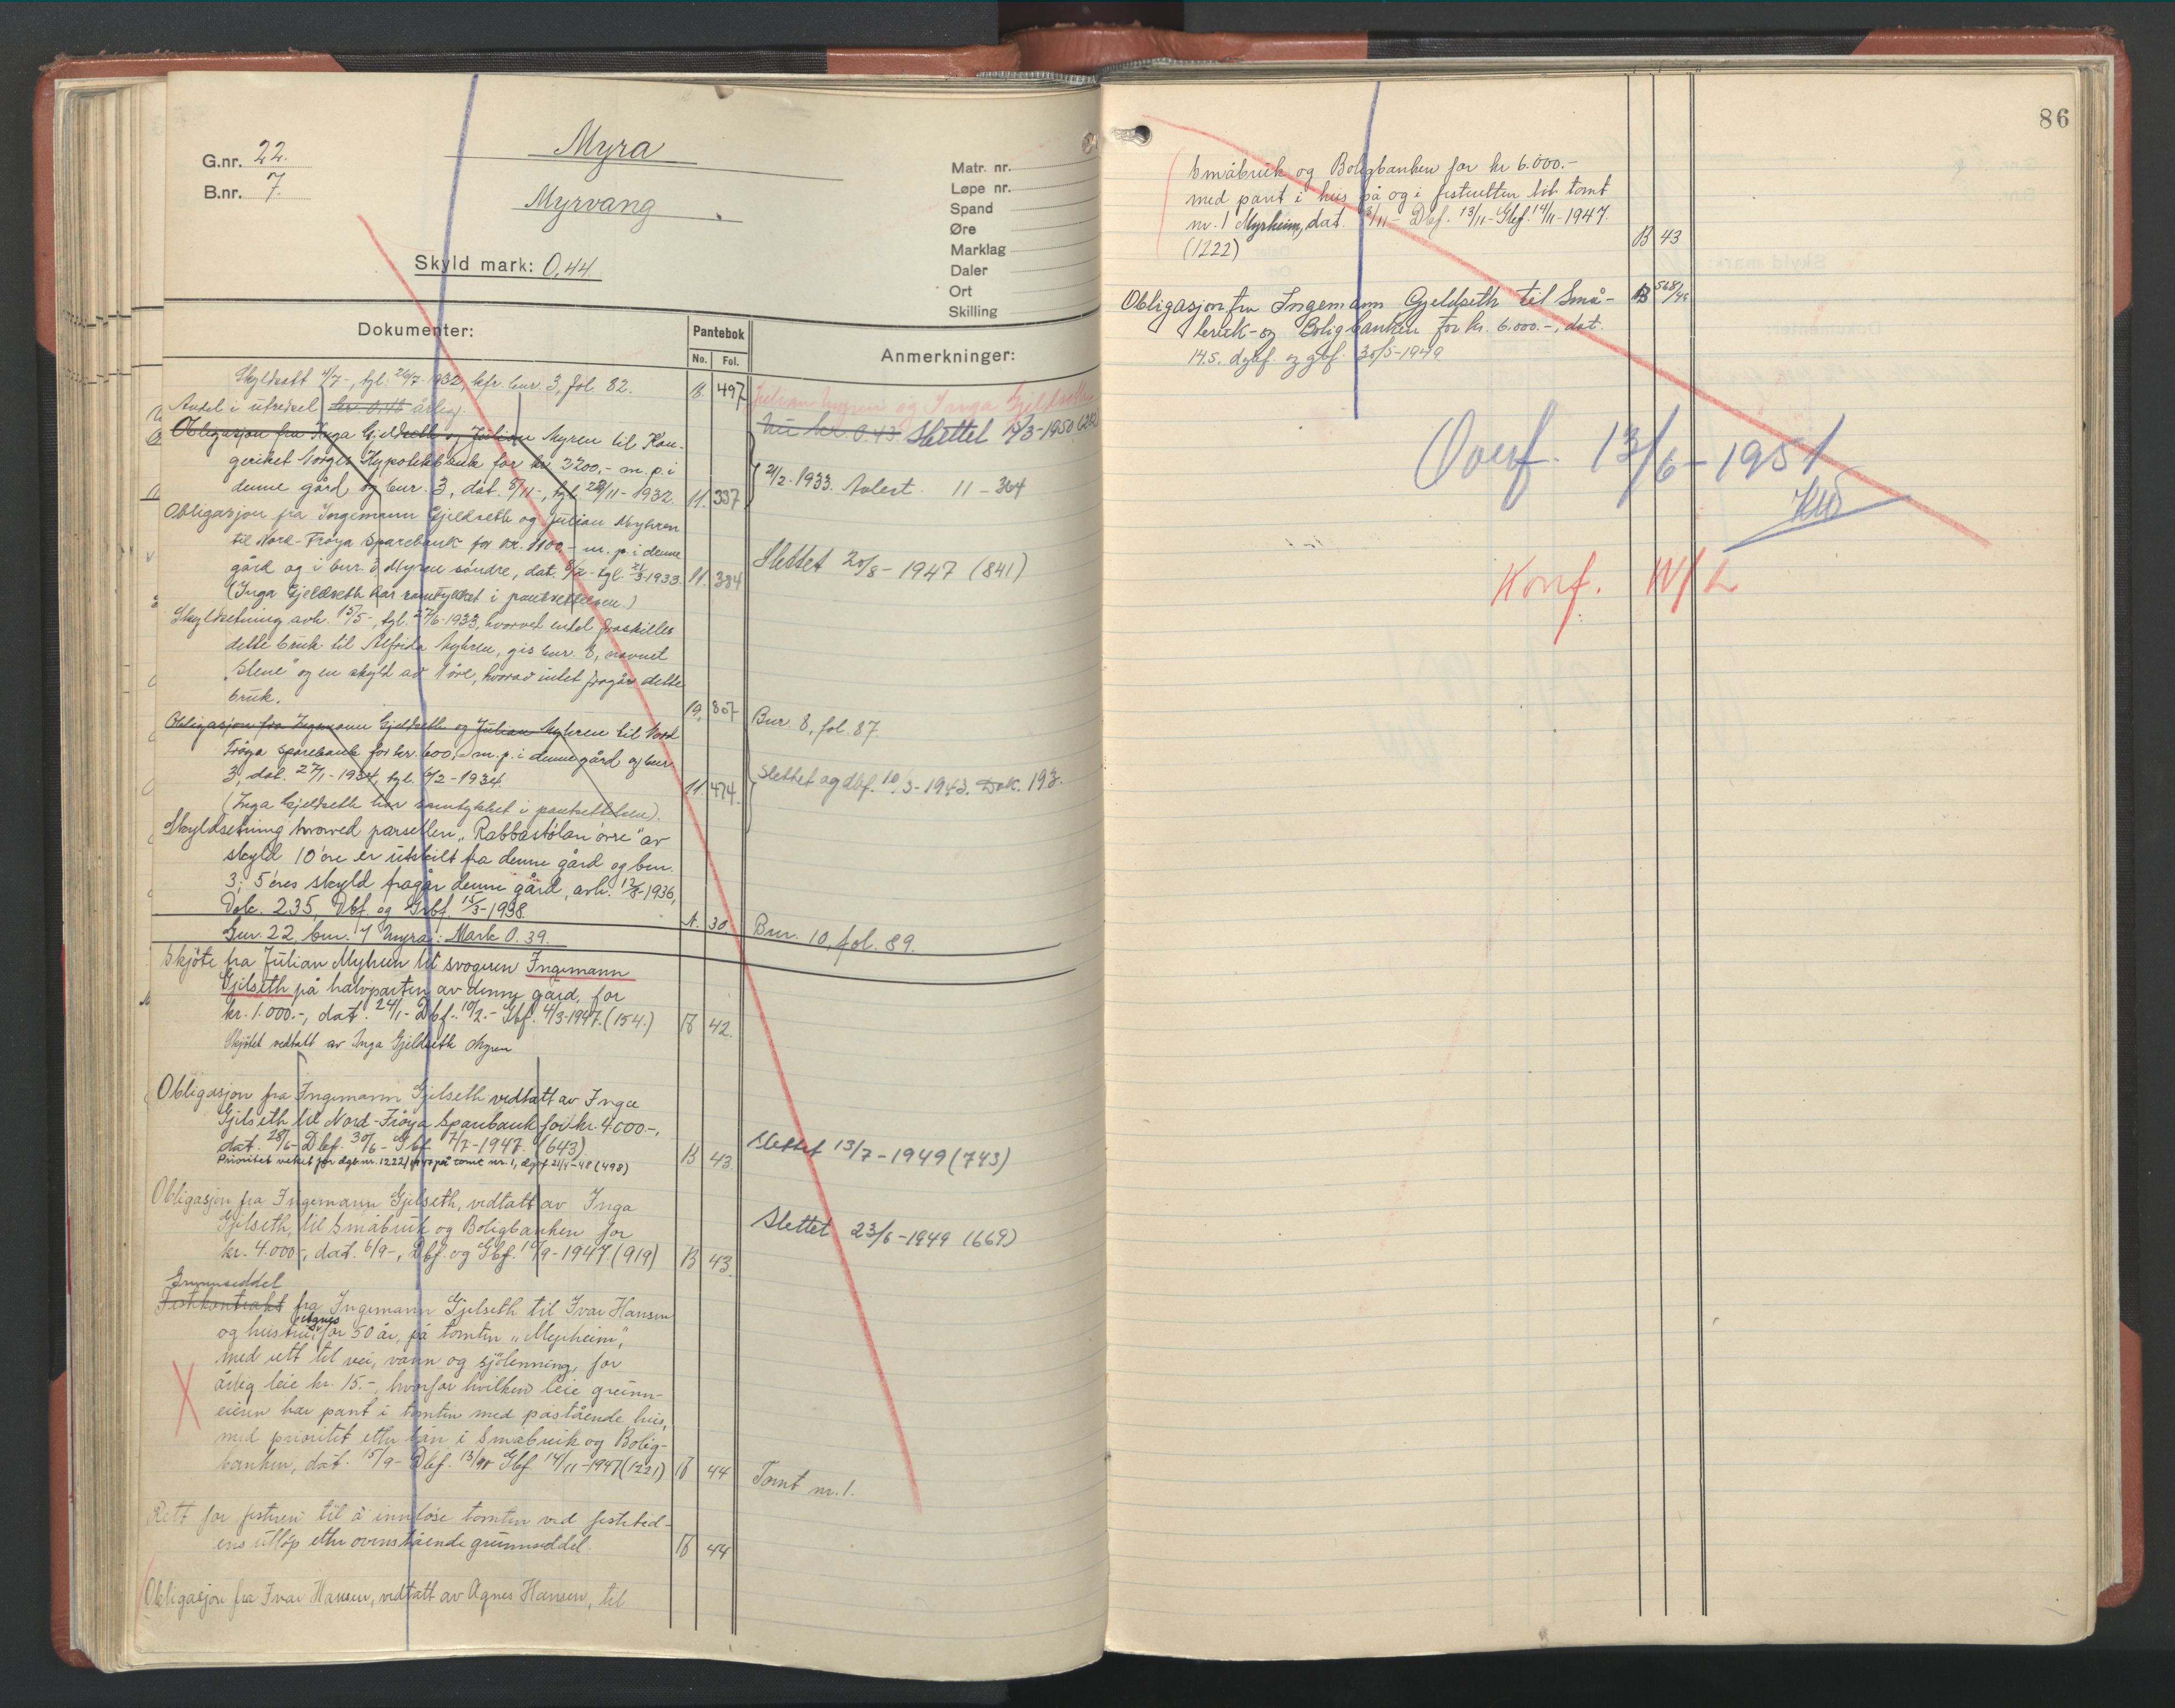 G.nr. 22.
B.nr. 7.
Myra
Myrvang
Skyld mark: 0,44
Matr. nr.
Løpe nr.
Spand
Øre
Marklag
Daler
Ort
Skilling
Dokumenter:
Pantebok
No. Fol.
Anmerkninger:
Skyldsatt 4/7-, tgl. 26/7-1932, kfr. bnr. 3, fol. 82. B. 497
Julian Myren og Inga Gjeldseth
Andel i utredsel kr. 0.48 årlig.
nu kr. 0.43 Slettet /3-1950
Obligasjon fra Inga Gjeldseth og Julian Myren til Kon-
geriket Norges Hypotekbank for kr 3200,- m. p. i
denne gård og bnr. 3, dat. 8/11-, tgl. 28/11-1932. 11. 337
21/2-1933. Avlest. 11-364
Obligasjon fra Ingemann Gjeldseth og Julian Myhren
til Nord-Frøya Sparebank for kr. 1100,- m. p. i denne
gård og i bnr. 3 Myren søndre, dat. 8/2- tgl. 21/3-1933. 11. 384
Slettet 20/8-1947 (841)
(Inga Gjeldseth har samtykket i pantsettelsen.)
Skyldsetning avh. 15/5-, tgl. 27/6-1933, hvorved endel fraskilles
dette bruk til Alfrida Myhren, gis bnr. 8, navnet
"Stene" og en skyld av 1 øre, hvorav intet fragår dette
bruk. 19. 807
Bnr. 8, fol. 87.
Obligasjon fra Ingemann Gjeldseth og Julian Myhren til Nord
Frøya Sparebank for kr. 600,- m. p. i denne gård og bnr.
3, dat. 27/1-1934, tgl. 6/2-1934. 11. 474.
Slettet og dbf. 10/3-1943. Dok. 193.
(Inga Gjeldseth har samtykket i pantsettelsen).
Skyldsetning hvorved parsellen "Rabbastölan övre" av
skyld 10 öre er utskilt fra denne gård og bnr.
3; 5 öres skyld fragår denne gård, avh. 12/8-1936,
Dok. 235, Dbf. og Gbf. 15/3-1938. A. 30.
Bnr. 10, fol. 89.
Gnr. 22, bnr. 7 Myra: Mark 0.39.
Skjöte fra Julian Myhren til svogeren Ingemann
Gjelseth på halvparten av denne gård, for
kr. 1.000.-, dat. 24/1- Dbf. 10/2.- Gbf. 4/3-1947. (154.) B 42.
Skjötet vedtatt av Inga Gjeldseth Myren
Obligasjon fra Ingemann Gjelseth vedtatt av Inga
Gjelseth til Nord-Fröya Sparebank for kr. 4000.-,
dat. 28/6- Dbf. 30/6- Gbf. 7/7-1947. (643) B 43
Slettet 13/7-1949 (743)
Prioritet veket for dgb.nr. 1222/1947 på tomt nr. 1, dgbf. 21/4-48 (498)
Obligasjon fra Ingemann Gjelseth, vedtatt av Inga
Gjelseth, til Småbruk og Boligbanken for
kr. 4.000-, dat. 6/9-, Dbf. og Gbf. 10/9-1947 (919) B 43.
Slettet 23/6-1949 (669)
Grunnseddel
Festekontrakt fra Ingemann Gjelseth til Ivar Hansen
og hustru Agnes for 50 år, på tomten "Myrheim",
med rett til vei, vann og sjölenning, for
årlig leie kr. 15.-, hvorfor hvilken leie grunn-
eieren har pant i tomten med påstående hus,
med prioritet etter lån i Småbruk og Bolig-
banken, dat. 15/9- Dbf. 13/11 Gbf 14/11-1947 (1221) B 44
Tomt nr. 1.
Rett for festeren til å innlöse tomten ved festetid-
ens utlöp etter ovenstående grunnseddel. B 44
Obligasjon fra Ivar Hansen, vedtatt av Agnes Hansen, til
86
Småbruk og Boligbanken for kr 6.000.-
med pant i hus på og i festeretten til tomt
nr. 1 Myrheim, dat. /11- Dbf. 13/11- Gbf. 14/11-1947.
(1222) B 43
Obligasjon fra Ingemann Gjeldseth til Små- B 568/49
bruk- og Boligbanken for kr. 6.000.-, dat.
14.5. dgbf. og gbf. 30/5-1949
Overf. 13/6-1951
Konf.